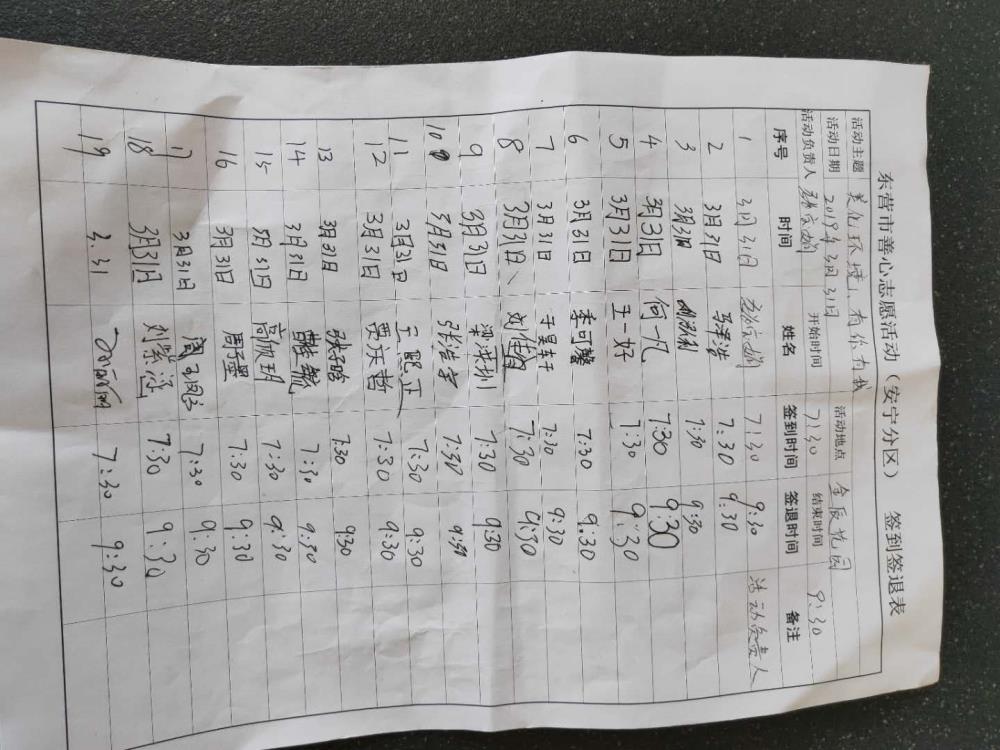 东营市善心志愿活动（安宁分区） 签到签退表
活动主题 美化环境、有你有我 活动地点 金辰花园
活动日期 2019年3月31日 开始时间 7:30 结束时间 9:30
活动负责人
序号 时间 姓名 签到时间 签退时间 备注
1 3月31日 7:30 9:30 活动负责人
2 3月31日 马泽浩 7:30 9:30
3 3月31日 7:30 9:30
4 3月31日 何一凡 7:30 9:30
5 3月31日 王一好 7:30 9:30
6 3月31日 李可馨 7:30 9:30
7 3月31日 于昊车干 7:30 9:30
8 3月31日 刘佳 7:30 9:30
9 3月31日 梁 7:30 9:30
10 3月31日 张浩宇 7:30 9:30
11 3月31日 王熙正 7:30 9:30
12 3月31日 贾庆哲 7:30 9:30
13 3月31日 张晗 7:30 9:30
14 3月31日 毓 7:30 9:30
15 3月31日 高帆玥 7:30 9:30
16 3月31日 周子墨 7:30 9:30
17 3月31日 7:30 9:30
18 3月31日 刘紫涵 7:30 9:30
19 3.31 7:30 9:30